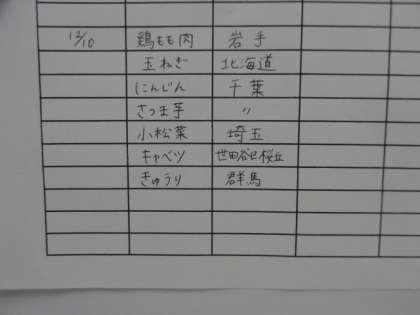 12/10 鶏もも肉 岩手
玉ねぎ 北海道
にんじん 千葉
さつま芋 〃
小松菜 埼玉
キャベツ 世田谷区桜丘
きゅうり 群馬